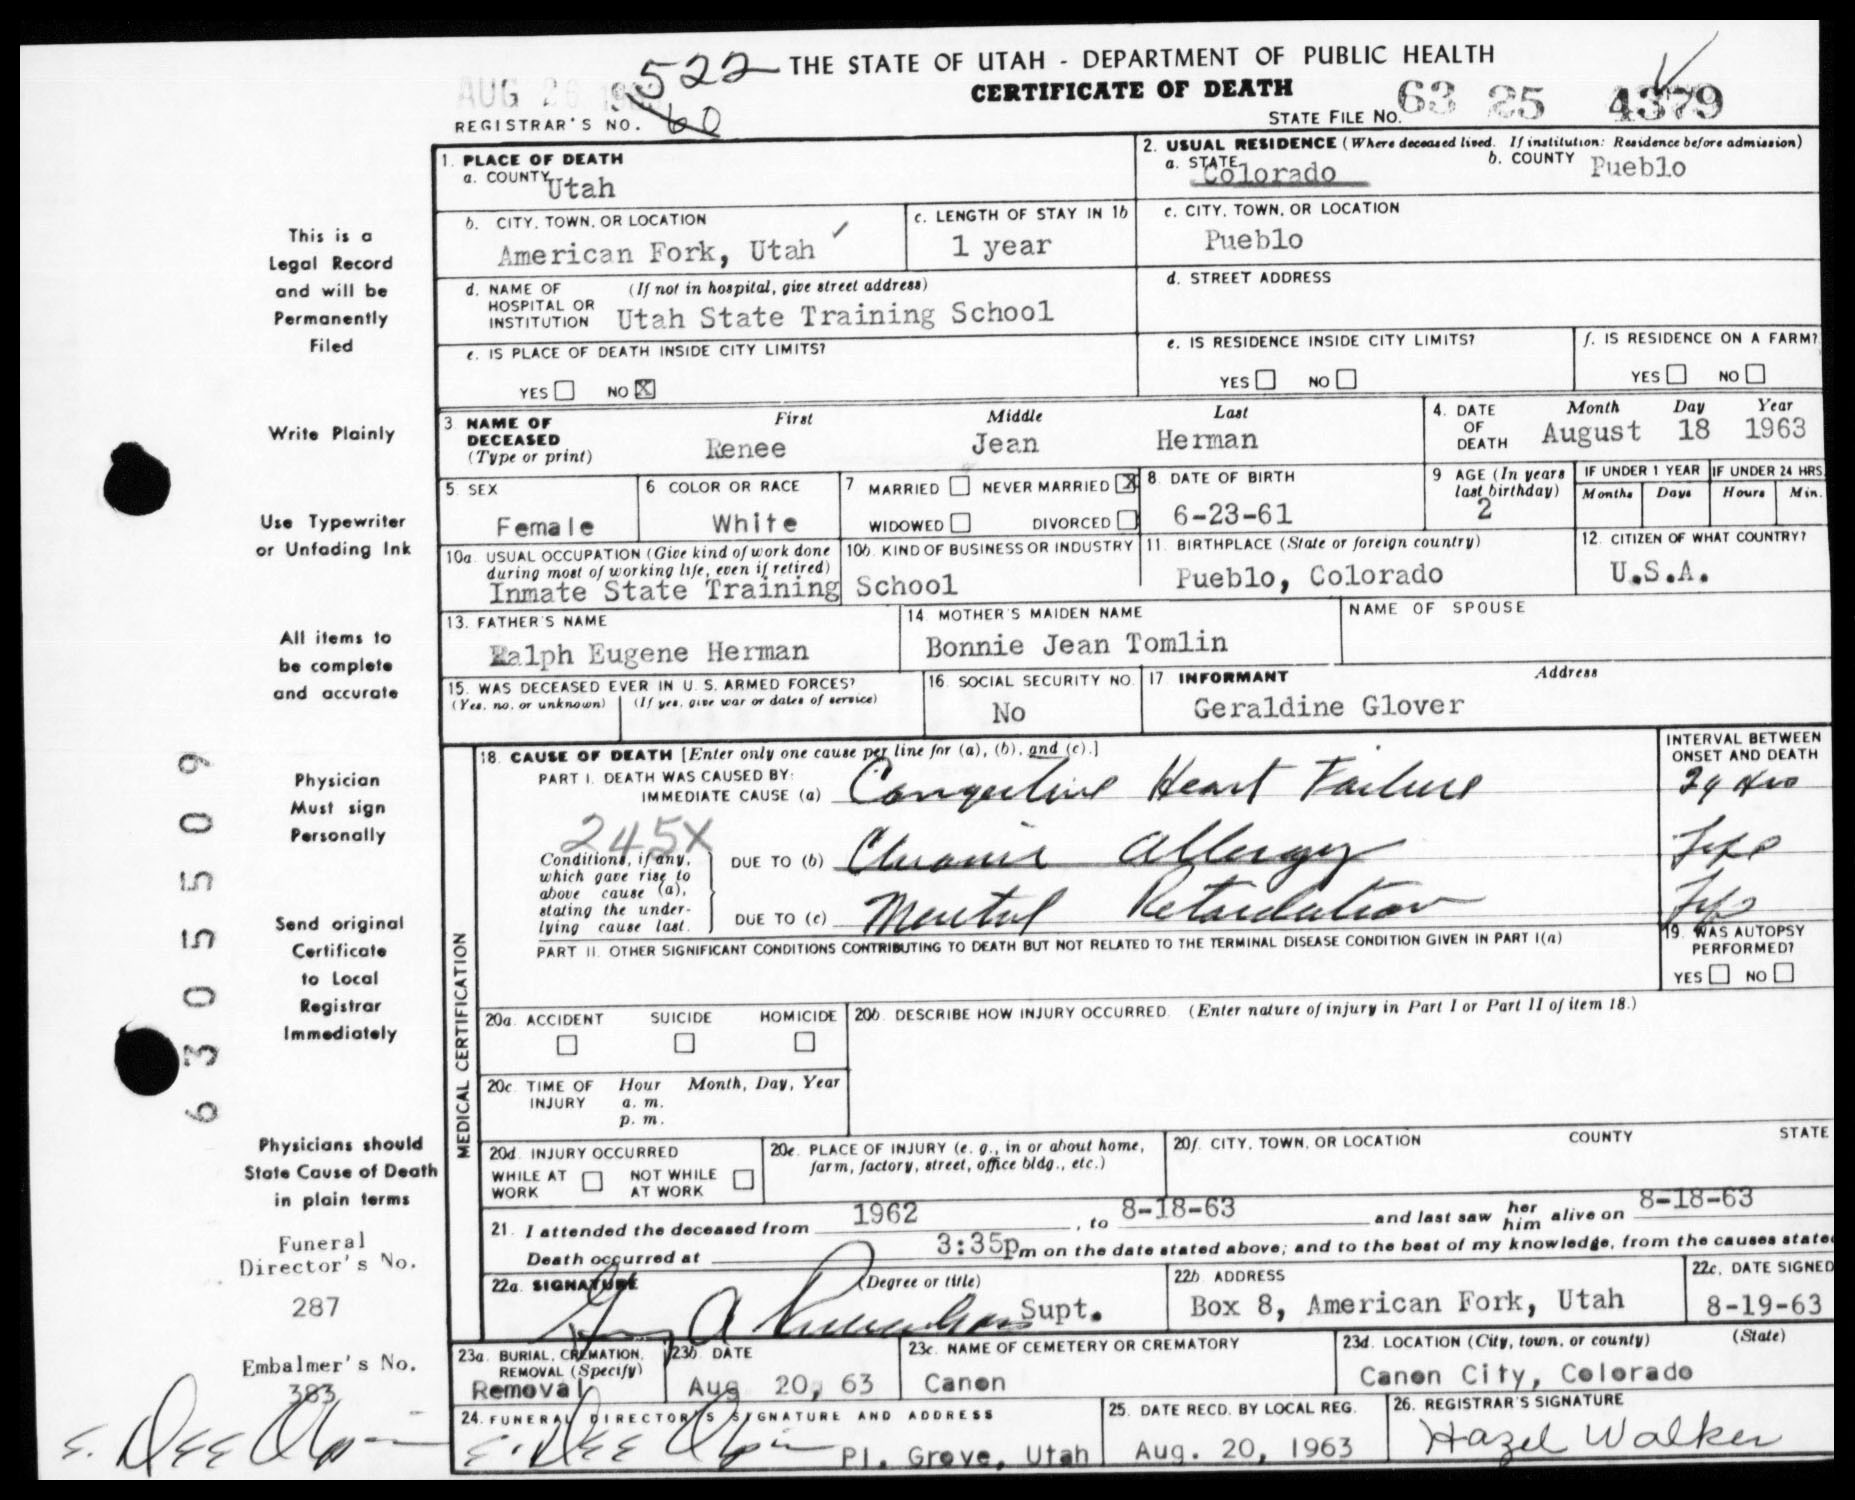 AUG 26 1963
522
THE STATE OF UTAH - DEPARTMENT OF PUBLIC HEALTH
CERTIFICATE OF DEATH
REGISTRAR'S NO. 60
STATE FILE NO. 63 25 4379
1. PLACE OF DEATH
a. COUNTY Utah
2. USUAL RESIDENCE (Where deceased lived. If institution: Residence before admission)
a. STATE Colorado
b. COUNTY Pueblo
b. CITY, TOWN, OR LOCATION
American Fork, Utah
c. LENGTH OF STAY IN 1b
1 year
c. CITY, TOWN, OR LOCATION
Pueblo
d. NAME OF HOSPITAL OR INSTITUTION (If not in hospital, give street address)
Utah State Training School
d. STREET ADDRESS
e. IS PLACE OF DEATH INSIDE CITY LIMITS?
YES NO X
e. IS RESIDENCE INSIDE CITY LIMITS?
YES NO
f. IS RESIDENCE ON A FARM?
YES NO
3. NAME OF DECEASED (Type or print)
First Middle Last
Renee Jean Herman
4. DATE OF DEATH
Month Day Year
August 18 1963
5. SEX
Female
6 COLOR OR RACE
White
7 MARRIED NEVER MARRIED X
WIDOWED DIVORCED
8. DATE OF BIRTH
6-23-61
9 AGE (In years last birthday)
2
IF UNDER 1 YEAR
Months Days
IF UNDER 24 HRS.
Hours Min.
10a. USUAL OCCUPATION (Give kind of work done during most of working life, even if retired)
10b. KIND OF BUSINESS OR INDUSTRY
Inmate State Training School
11. BIRTHPLACE (State or foreign country)
Pueblo, Colorado
12. CITIZEN OF WHAT COUNTRY?
U.S.A.
13. FATHER'S NAME
Ralph Eugene Herman
14. MOTHER'S MAIDEN NAME
Bonnie Jean Tomlin
NAME OF SPOUSE
15. WAS DECEASED EVER IN U. S. ARMED FORCES?
(Yes, no, or unknown) (If yes, give war or dates of service)
16. SOCIAL SECURITY NO.
No
17 INFORMANT Address
Geraldine Glover
MEDICAL CERTIFICATION
18. CAUSE OF DEATH [Enter only one cause per line for (a), (b), and (c).]
INTERVAL BETWEEN ONSET AND DEATH
PART I. DEATH WAS CAUSED BY:
IMMEDIATE CAUSE (a) Congestive Heart Failure 24 Hrs
245X
Conditions, if any, which gave rise to above cause (a), stating the underlying cause last.
DUE TO (b) Chronic Allergy Life
DUE TO (c) Mental Retardation Life
PART II. OTHER SIGNIFICANT CONDITIONS CONTRIBUTING TO DEATH BUT NOT RELATED TO THE TERMINAL DISEASE CONDITION GIVEN IN PART I(a)
19. WAS AUTOPSY PERFORMED?
YES NO
20a. ACCIDENT SUICIDE HOMICIDE
20b. DESCRIBE HOW INJURY OCCURRED. (Enter nature of injury in Part I or Part II of item 18.)
20c. TIME OF INJURY Hour Month, Day, Year
a. m.
p. m.
20d. INJURY OCCURRED
WHILE AT WORK NOT WHILE AT WORK
20e. PLACE OF INJURY (e. g., in or about home, farm, factory, street, office bldg., etc.)
20f. CITY, TOWN, OR LOCATION COUNTY STATE
21. I attended the deceased from 1962, to 8-18-63 and last saw her him alive on 8-18-63
Death occurred at 3:35p m on the date stated above; and to the best of my knowledge, from the causes stated
22a. SIGNATURE (Degree or title)
Supt.
22b. ADDRESS
Box 8, American Fork, Utah
22c. DATE SIGNED
8-19-63
23a. BURIAL, CREMATION, REMOVAL (Specify)
Removal
23b. DATE
Aug 20, 63
23c. NAME OF CEMETERY OR CREMATORY
Canon
23d. LOCATION (City, town, or county) (State)
Canon City, Colorado
24. FUNERAL DIRECTOR'S SIGNATURE AND ADDRESS
Pl. Grove, Utah
25. DATE RECD. BY LOCAL REG.
Aug. 20, 1963
26. REGISTRAR'S SIGNATURE
Hazel Walker
This is a
Legal Record
and will be
Permanently
Filed
Write Plainly
Use Typewriter
or Unfading Ink
All items to
be complete
and accurate
Physician
Must sign
Personally
Send original
Certificate
to Local
Registrar
Immediately
Physicians should
State Cause of Death
in plain terms
Funeral
Director's No.
287
Embalmer's No.
383
630 5 5 509